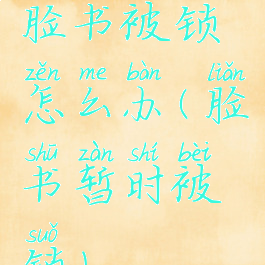 脸书被锁
zěn me bàn liǎn
怎么办(脸
shū zàn shí bèi
书暂时被
suǒ
锁)